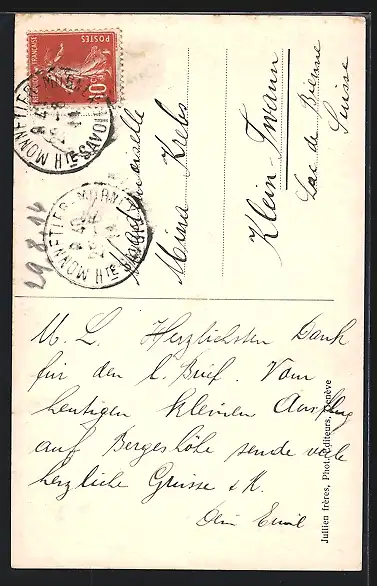 POSTES
10c
REPUBLIQUE FRANÇAISE
MONNETIER-MORNEX
Hte SAVOIE
MONNETIER-MORNEX
Hte SAVOIE
29.8.14
Mademoiselle
Mina Krebs
Klein-Twann
Lac de Bienne
Suisse
M. L. Herzlichsten Dank
für den l. Brief. Vom
heutigen kleinen Ausflug
auf Bergeshöhe sende viele
herzliche Grüsse & K.
Dein Emil
Jullien frères, Phot. Editeurs, Genève